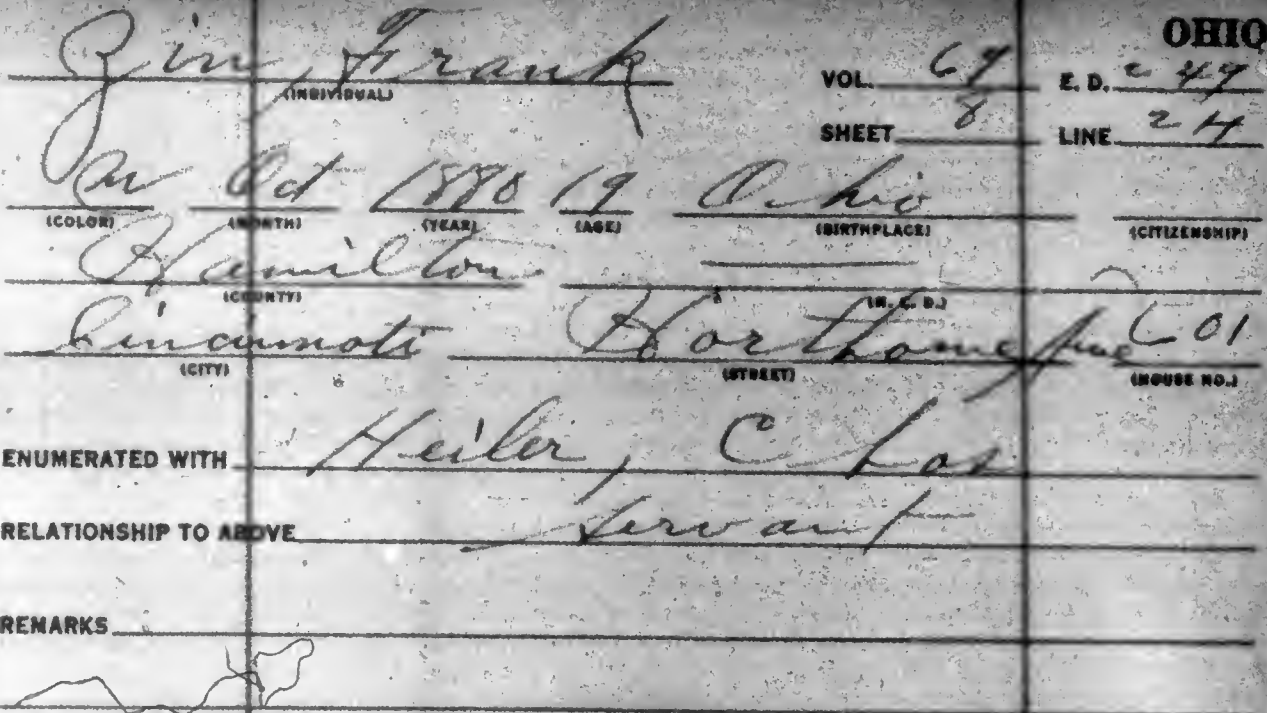 OHIO
Zim, Frank VOL. 69 E. D. 249
(INDIVIDUAL)
SHEET 8 LINE 24
W Oct 1880 19 Ohio
(COLOR) (MONTH) (YEAR) (AGE) (BIRTHPLACE) (CITIZENSHIP)
Hamilton
(COUNTY) (M. C. D.)
Cincinnati Hawthorne Ave 601
(CITY) (STREET) (HOUSE NO.)
ENUMERATED WITH Heiler, Chas
RELATIONSHIP TO ABOVE Servant
REMARKS